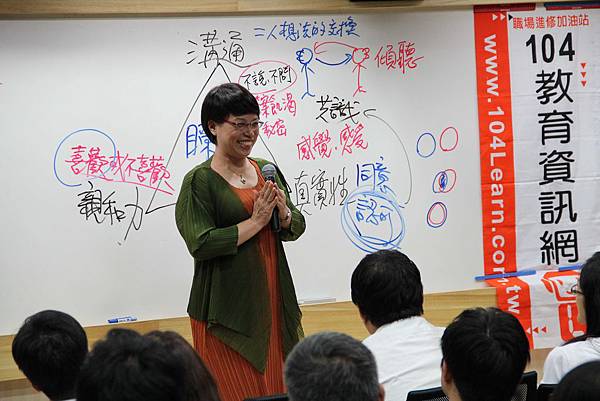 溝通
二人想法的交換
不說不問
傾聽
感覺.感受
喜歡或不喜歡
親和力
真實性
同意
認同
職場進修加油站
104教育資訊網
www.104Learn.com.tw